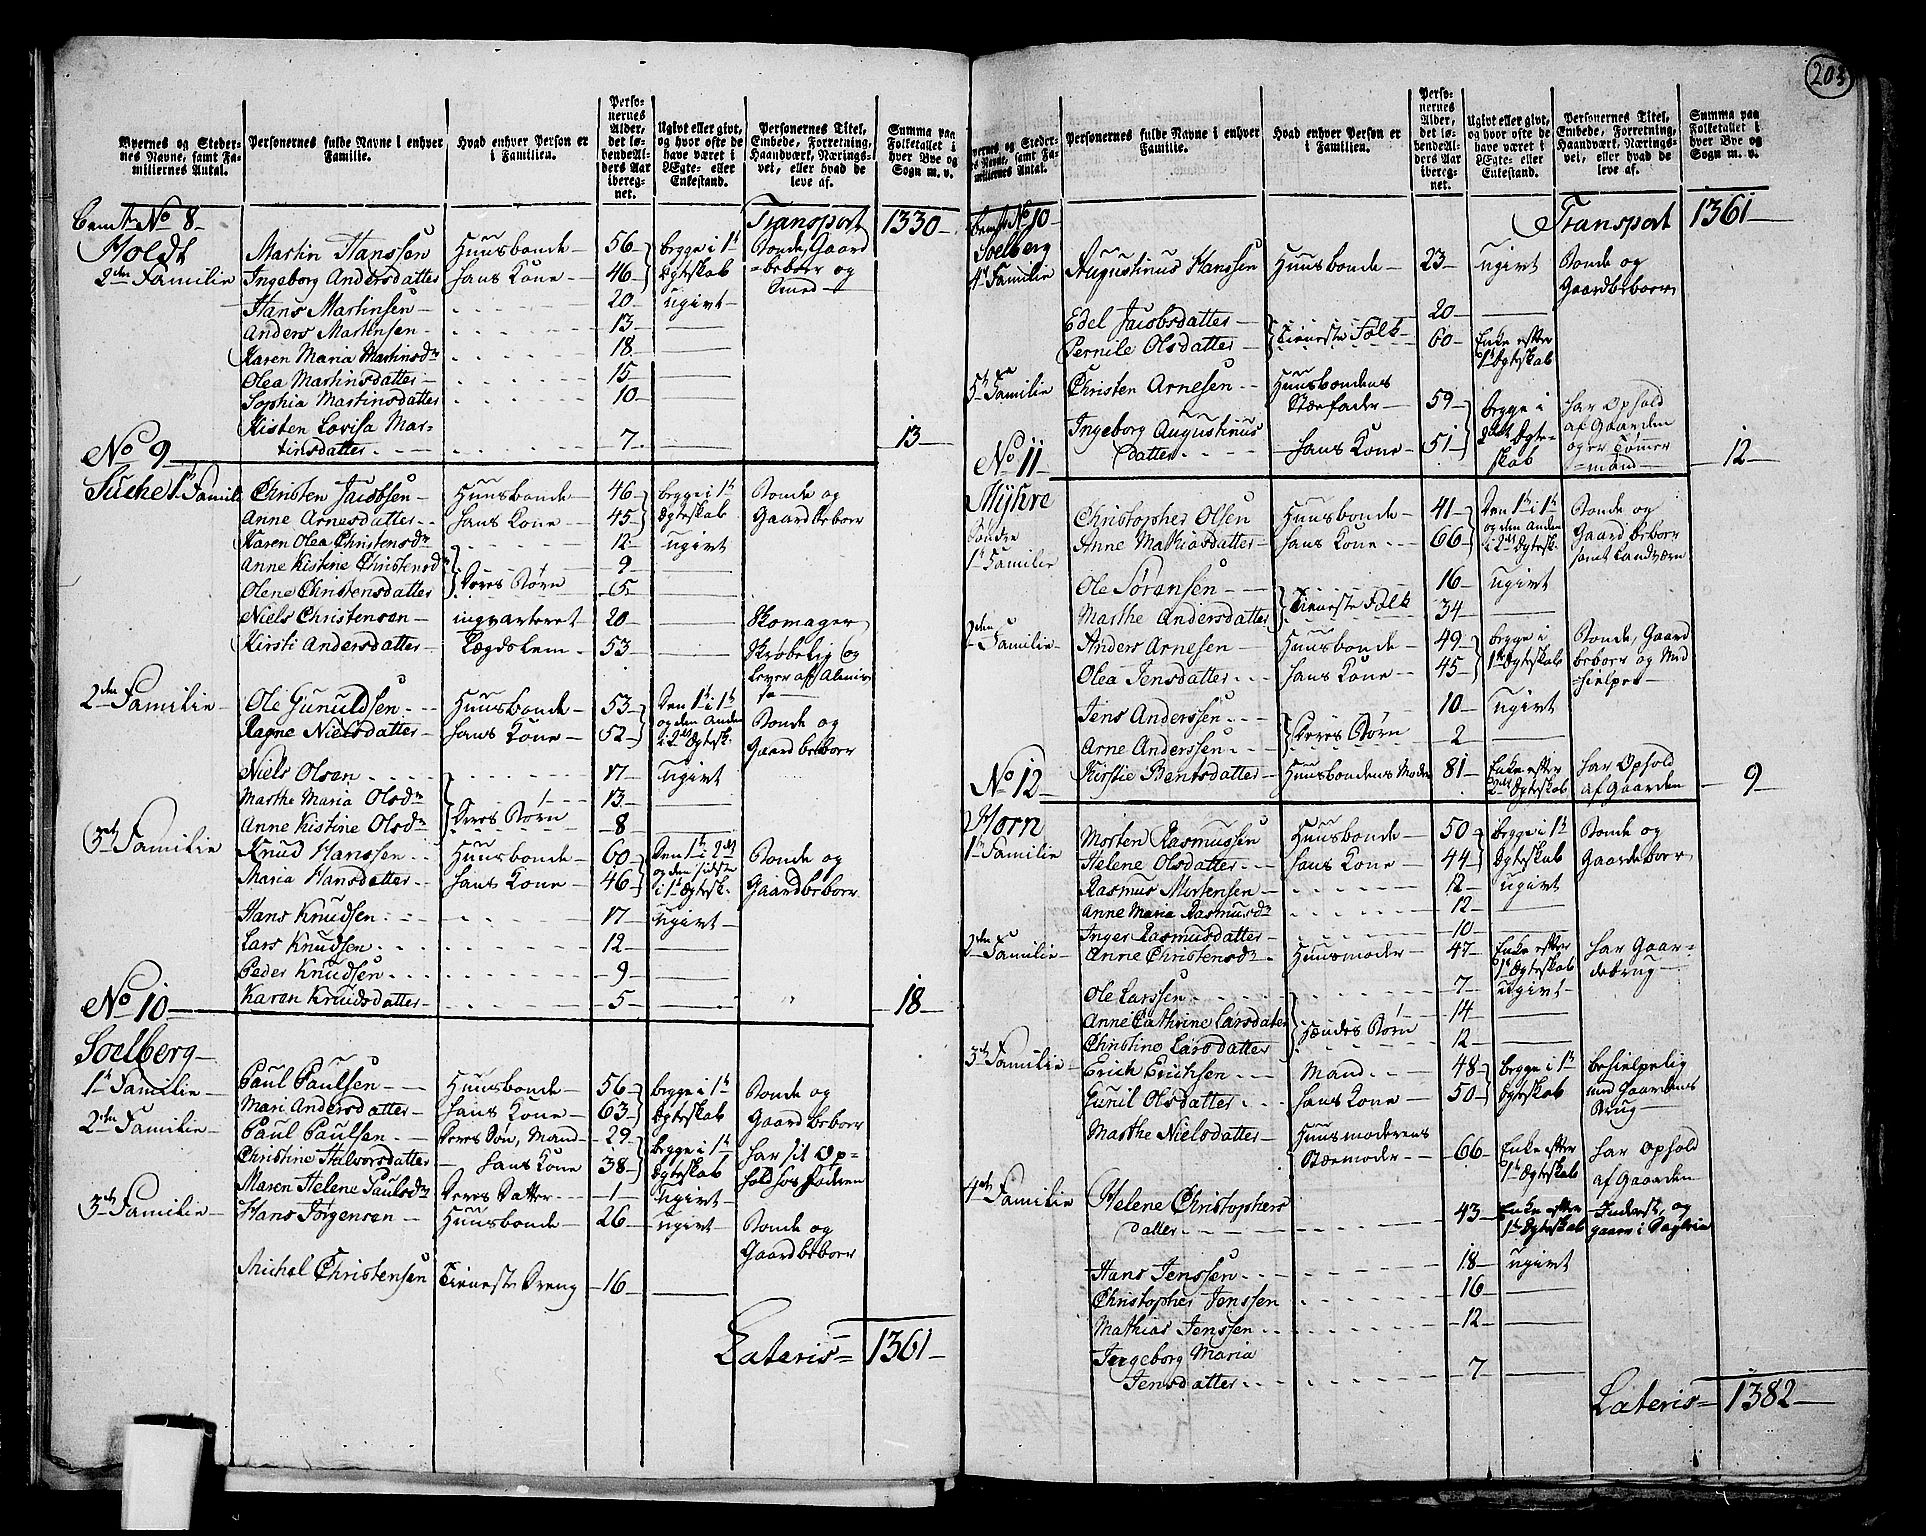 203
Byernes og Stedernes Navne, samt Familiernes Antal.
Personernes fulde Navne i enhver Familie.
Hvad enhver Person er i Familien.
Personernes Alder, det løbende Alders Aar iberegnet.
Ugivt eller givt, og hvor ofte de have været i Ægte- eller Enkestand.
Personernes Titel, Embede, Forretning, Haandværk, Næringsvei, eller hvad de leve af.
Summa paa Folketallet i hver Bye og Sogn m. v.
No 8 Transport 1330
Holdt Martin Hanssen Huusbonde 56 begge i 1te Bonde, Gaard
2den Familie Ingeborg Andersdatter Hans Kone 46 Egteskab beboer og
Hans Martinsen 20 ugivt Smed
Anders Martinsen 13
Karen Maria Martinsdr 18
Olea Martinsdatter 15
Sophia Martinsdatter 10
Kisten Lovisa Mar-
tinsdatter 7 13
No 9
1te Famil Christen Jacobsen Huusbonde 46 begge i 1te Bonde og
Anne Arnesdatter Hans Kone 45 Egteskab Gaardbeboer
Karen Olea Christensdr 12 ugivt
Anne Kistine Christensdr 9
Olene Christensdatter Deres Børn 5
Niels Christensen inqvarteret 20 Skomager
Kirsti Andersdatter Lægdslem 53 Skrøbelig og
lever af Almis-
se
2den Familie Ole Gunuldsen Huusbonde 53 Den 1te i 1te
og den Anden Bonde og
Ragne Nielsdatter Hans Kone 52 i 2det Egtesk. Gaardbeboer
Niels Olsen 17 ugivt
Marthe Maria Olsdr 13
Anne Kistine Olsdr Deres Børn 8
3die Familie Knud Hanssen Huusbonde 60 Den 1te i 2det Bonde og
og den sidste
Maria Hansdatter Hans Kone 46 i 1te Egtesk. Gaardbeboer
Hans Knudsen 17 ugivt
Lars Knudsen 12
Peder Knudsen 9
Karen Knudsdatter 5 18
No 10
Soelberg
1te Familie Paul Paulsen Huusbonde 56 begge i 1te Bonde og
Mari Andersdatter Hans Kone 63 Egteskab Gaardbeboer
2den Familie Paul Paulsen Deres Søn, Mand 29 begge i 1te har sit Op-
Christine Halvorsdatter Hans Kone 38 Egteskab hold hos Faderen
Maren Helene Paulsdr Deres Datter 1 ugivt
3die Familie Hans Jørgensen Huusbonde 26 ugivt Bonde og
Gaardbeboer
Michel Christensen Tieneste Dreng 16
Lateris 1361
Byernes og Stedernes Navne, samt Familiernes Antal.
Personernes fulde Navne i enhver Familie.
Hvad enhver Person er i Familien.
Personernes Alder, det løbende Alders Aar iberegnet.
Ugivt eller givt, og hvor ofte de have været i Ægte- eller Enkestand.
Personernes Titel, Embede, Forretning, Haandværk, Næringsvei, eller hvad de leve af.
Summa paa Folketallet i hver Bye og Sogn m. v.
No 10 Transport 1361
Soelberg
4de Familie Augustinus Hanssen Huusbonde 23 ugivt Bonde og
Gaardbeboer
Edel Jacobsdatter 20
Pernile Olsdatter Tieneste Folk 60 Enke efter
1te Egteskab
5te Familie Christen Arnesen Huusbondens
Stæfader 59 begge i har Ophold
Ingeborg Augustinus 2det Egte- af Gaarden
datter Hans Kone 51 skab og er Tømmer
mand 12
No 11
Myhre Christopher Olsen Huusbonde 41 Den 1te i 1te Bonde og
Søndre og den Anden Gaardbeboer
Anne Mathiasdatter Hans Kone 66 i 2det Egtesk. samt Landværn
1te Familie
Ole Sørensen 16 ugivt
Marthe Andersdatter Tieneste Folk 34
2den Familie Anders Arnesen Huusbonde 49 begge i Bonde, Gaard
Olea Jensdatter Hans Kone 45 1te Egteskab beboer og Med
hielper
Jens Anderssen 10 ugivt
Arne Anderssen Deres Børn 2
Kirstie Bentsdatter Huusbondens Moder 81 Enke efter har Ophold
2det Egteskab af Gaarden 9
No 12
Horn Morten Rasmussen Huusbonde 50 begge i 1te Bonde og
1te Familie Helene Olsdatter Hans Kone 44 Egteskab Gaardeboer
Rasmus Mortensen 12 ugivt
Anne Maria Rasmusdr 12
Inger Rasmusdatter 10
2den Familie Anne Christensdr Huusmoder 47 Enke efter har Gaar-
1te Egteskab debrug
Ole Larssen 7 ugivt
Anne Cathrine Larsdater 14
Christine Larsdatter Hendes Børn 12
3die Familie Erich Erichsen Mand 48 begge i 1te behielpelig
Gunil Olsdatter Hans Kone 50 Egteskab ved Gaardens
Brug
Marthe Nielsdatter Huusmoderens
Stæmoder 66 Enke efter har Ophold
1te Egteskab af Gaarden
4de Familie Helene Christophers
datter 43 Enke efter Inderst, og
1te Egteskab gaaer i Dagleie
Hans Jenssen 18 ugivt
Christopher Jenssen 16
Mathias Jenssen 12
Ingeborg Maria
Jensdatter 7
Lateris 1382